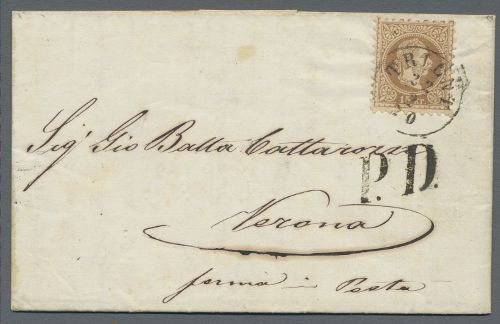 Sigʳ Gio Batta Cattarozzi
P.D.
Verona
ferma in Posta